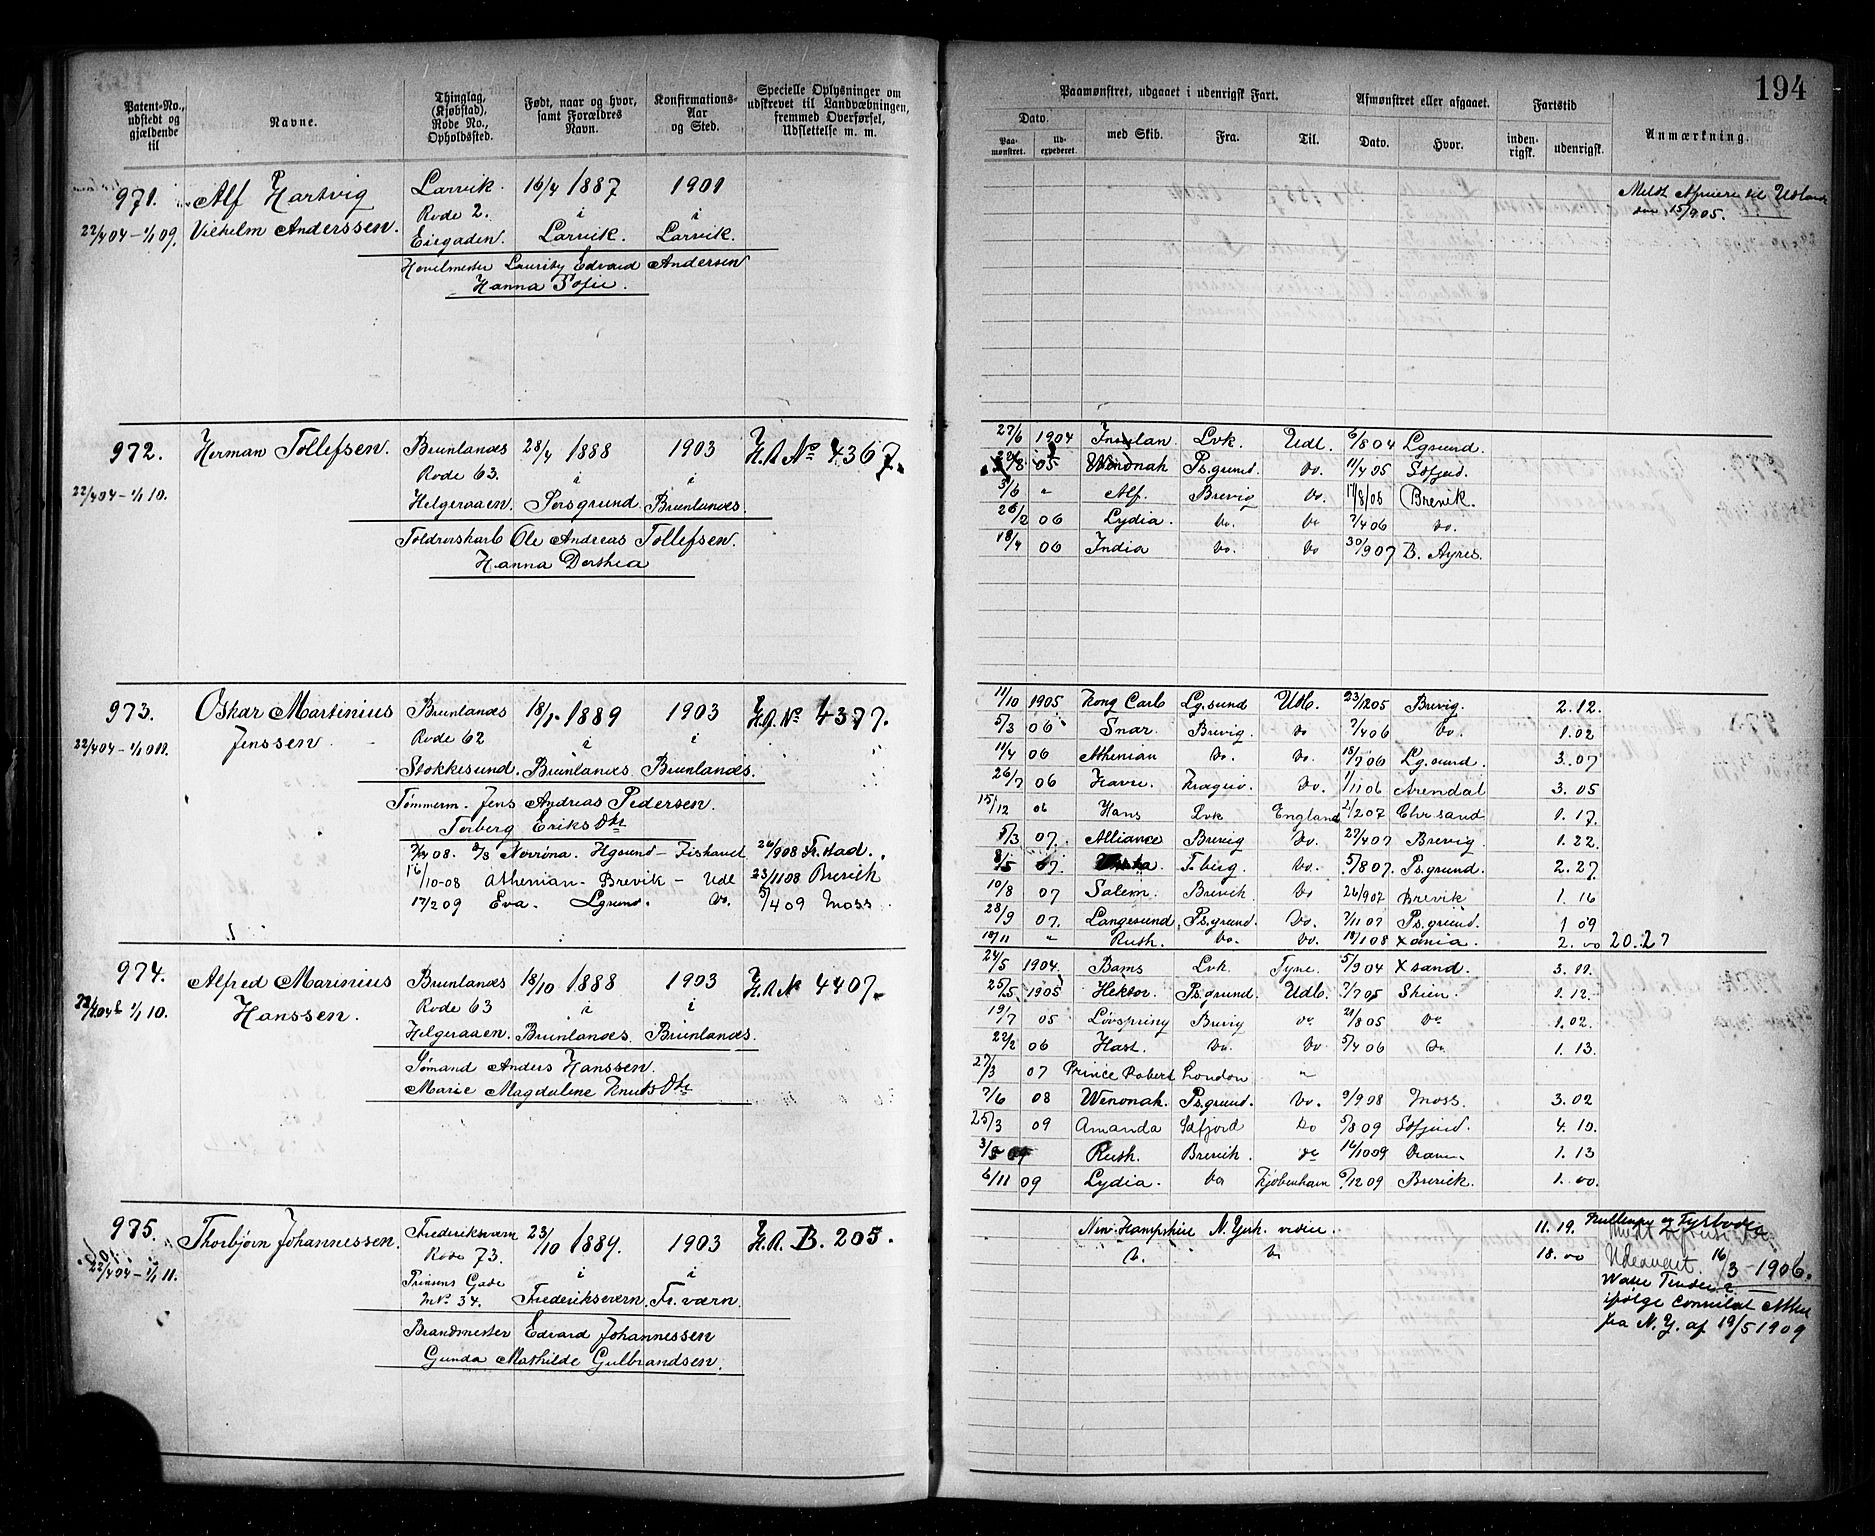 194
Patent-No., udstedt og gjældende til
Navne.
Thinglag, (Kjøbstad), Rode No., Opholdssted.
Født, naar og hvor, samt Forældres Navn.
Konfirmations-Aar og Sted.
Specielle Oplysninger om udskrevet til Landværnningen, fremmed Overførsel, Udslettelse m. m.
Paamønstret, udgaaet i udenrigsk Fart.
Afmønstret eller afgaaet.
Fartstid
Anmærkning.
Dato.
Paa-mønstret.
Ud-expederet.
med Skib.
Fra.
Til.
Dato.
Hvor.
inden-rigsk.
udenrigsk.
971. Alf Hartvig Larvik. 16/4 1887 1901
Rode 2. i i
22/4 04 - 1/1 09. Vilhelm Anderssen. Eiegaden. Larvik. Larvik.
Høvelmester Lauritz Edvard Andersen
Hanna Sofie.
Udland
den 15/9 05.
972. Herman Tollefsen. Brunlanæs 28/4 1888 1903 H.A. No 4367.
Rode 63. i i
22/4 04 - 1/1 10. Helgeraaen. Porsgrund Brunlanæs.
Ole Andreas Tollefsen.
Hanna Dorthea
27/6 1904 Lvk. Udl. 6/8 04 Lgsund.
05 Winonah Psgrund. Do. 11/4 05 Sdfjord.
3/6 " Alf. Brevig Do. 17/8/05 Brevik.
26/2 06 Lydia. Do. Do 7/4 06 Do.
18/4 06 India Do. Do 30/9 07 B. Ayres.
973. Oskar Martinius Brunlanæs 18/1 1889 1903 H.A. No 4377.
Jenssen. Rode 62 i i
22/4 04 -
Stokkesund. Brunlanæs Brunlanæs.
Tømmerm. Jens Andreas Pedersen.
Torberg Eriks Dtr
08. Norrøna. Hgsund - Fiskancl 26/9 08 Fr.stad.
16/10-08 Athenian - Brevik - Udl 23/11 08 Brevik
17/2 09 Eva. Lgsund. Do. 5/4 09 Moss
11/10 1905 Kong Carl Lg.sund Udl. 23/12 05 Brevig. 2. 12.
5/3 06 Snar. Brevig. Do 7/4 06 Do. 1. 02
11/4 06 Athenian Do. Do. 18/7 06 Lg.sund. 3. 07
26/7 06 Havre. Kragerø. Do. 1/11 06 Arendal 3. 05
15/12 06 Hans Lvk England 2/2 07 Chrsand 1. 17.
5/3 07. Alliance Brevig Do. 27/4 07 Brevig. 1. 22.
8/5 07. T.berg Do. 5/8 07. Ps.grund. 2. 27
10/8 07 Salem. Brevik Do 26/9 07 Brevik 1. 16
28/9 07. Langesund, Ps.grund. Do. 7/11 07 Ps.grund. 1 09
18/11 " Ruth. Do. Do. 18/1 08 Xania. 2. 00 20.27
974. Alfred Marinius Brunlanæs 18/10 1888 1903 H.A. No 4407.
Hanssen. Rode 63 i i
1/1 10.
Helgeraaen. Brunlanæs Brunlanæs.
Sømand Anders Hanssen.
Marie Magdalene Knuds Dtr
24/5 1904. Bams Lvk. Tyne. 5/9 04 Xsand. 3. 11.
25/5 1905 Hektor. Ps.grund. Udl. 7/7 05 Skien. 1. 12.
19/7 05 Løvspring Brevig Do 21/8 05 Do 1. 02.
22/2 06 Hast. Do. Do 5/4 06 Do 1. 13.
27/3 07 Prince Robert London "
7/6 08 Winonah. Ps.grund. Do. 9/9 08 Moss. 3. 02
25/3 09 Amanda Sdfjord Do 5/8 09 Sdfjord. 4. 10.
Ruth. Brevik. Do 16/10 09 Dram. 1. 13
6/11 09 Lydia. Do Kjøbenhavn 6/12 09 Brevik. 1. 00.
975. Thorbjørn Johannessen. Frederiksværn 23/10 1889. 1903 H.A. B. 205.
Rode 73. i i
22/4 04 - 1/1 11. Prinsens Gade
M No 34. Frederiksværn. Fr.værn.
Brandmester Edvard Johannessen
Gunda Mathilde Gulbrandsen.
New-Hampshire N. York. videre. 11. 19.
Do. Do 18. 00
16/3-1906.
Water Tender
ifølge Consulat Attest
fra N.Y. af 19/5 1909